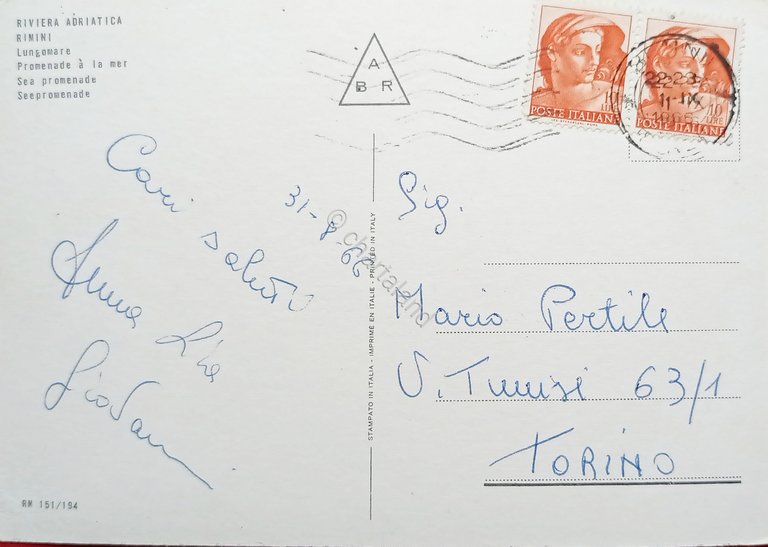 RIVIERA ADRIATICA
RIMINI
Lungomare
Promenade à la mer
Sea promenade
Seepromenade
A
B R
10
LIRE
POSTE ITALIANE
POSTE ITALIANE
RIMINI
22-23
11-IX
1966
Cari saluti
Anna Lia
Giovanni
31-8-66
© chartaland
STAMPATO IN ITALIA - IMPRIME EN ITALIE - PRINTED IN ITALY
Sig.
Mario Pertile
V. Tunisi 63/1
TORINO
RM 151/194